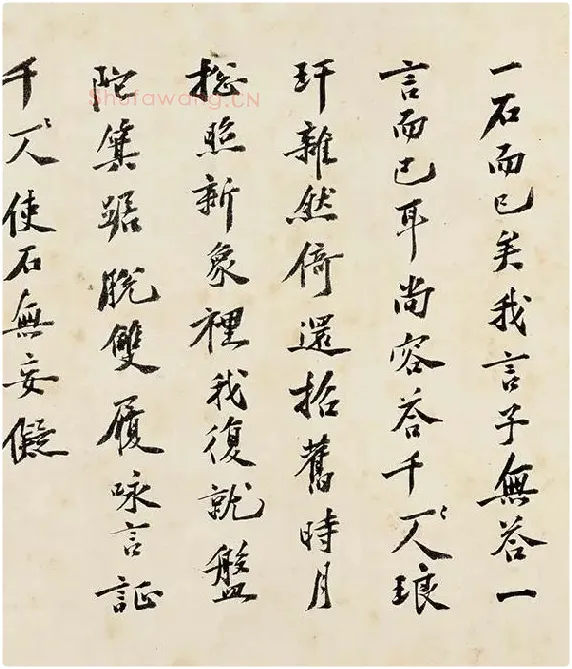 一石而已矣我言子無荅一
言而已耳尚容荅千人〻琅
玕雜然倚還拾舊時月
捴照新象裡我復就盤
陀箕踞脫雙履咏言証
千人〻使石無妄儗
Shufawang.CN